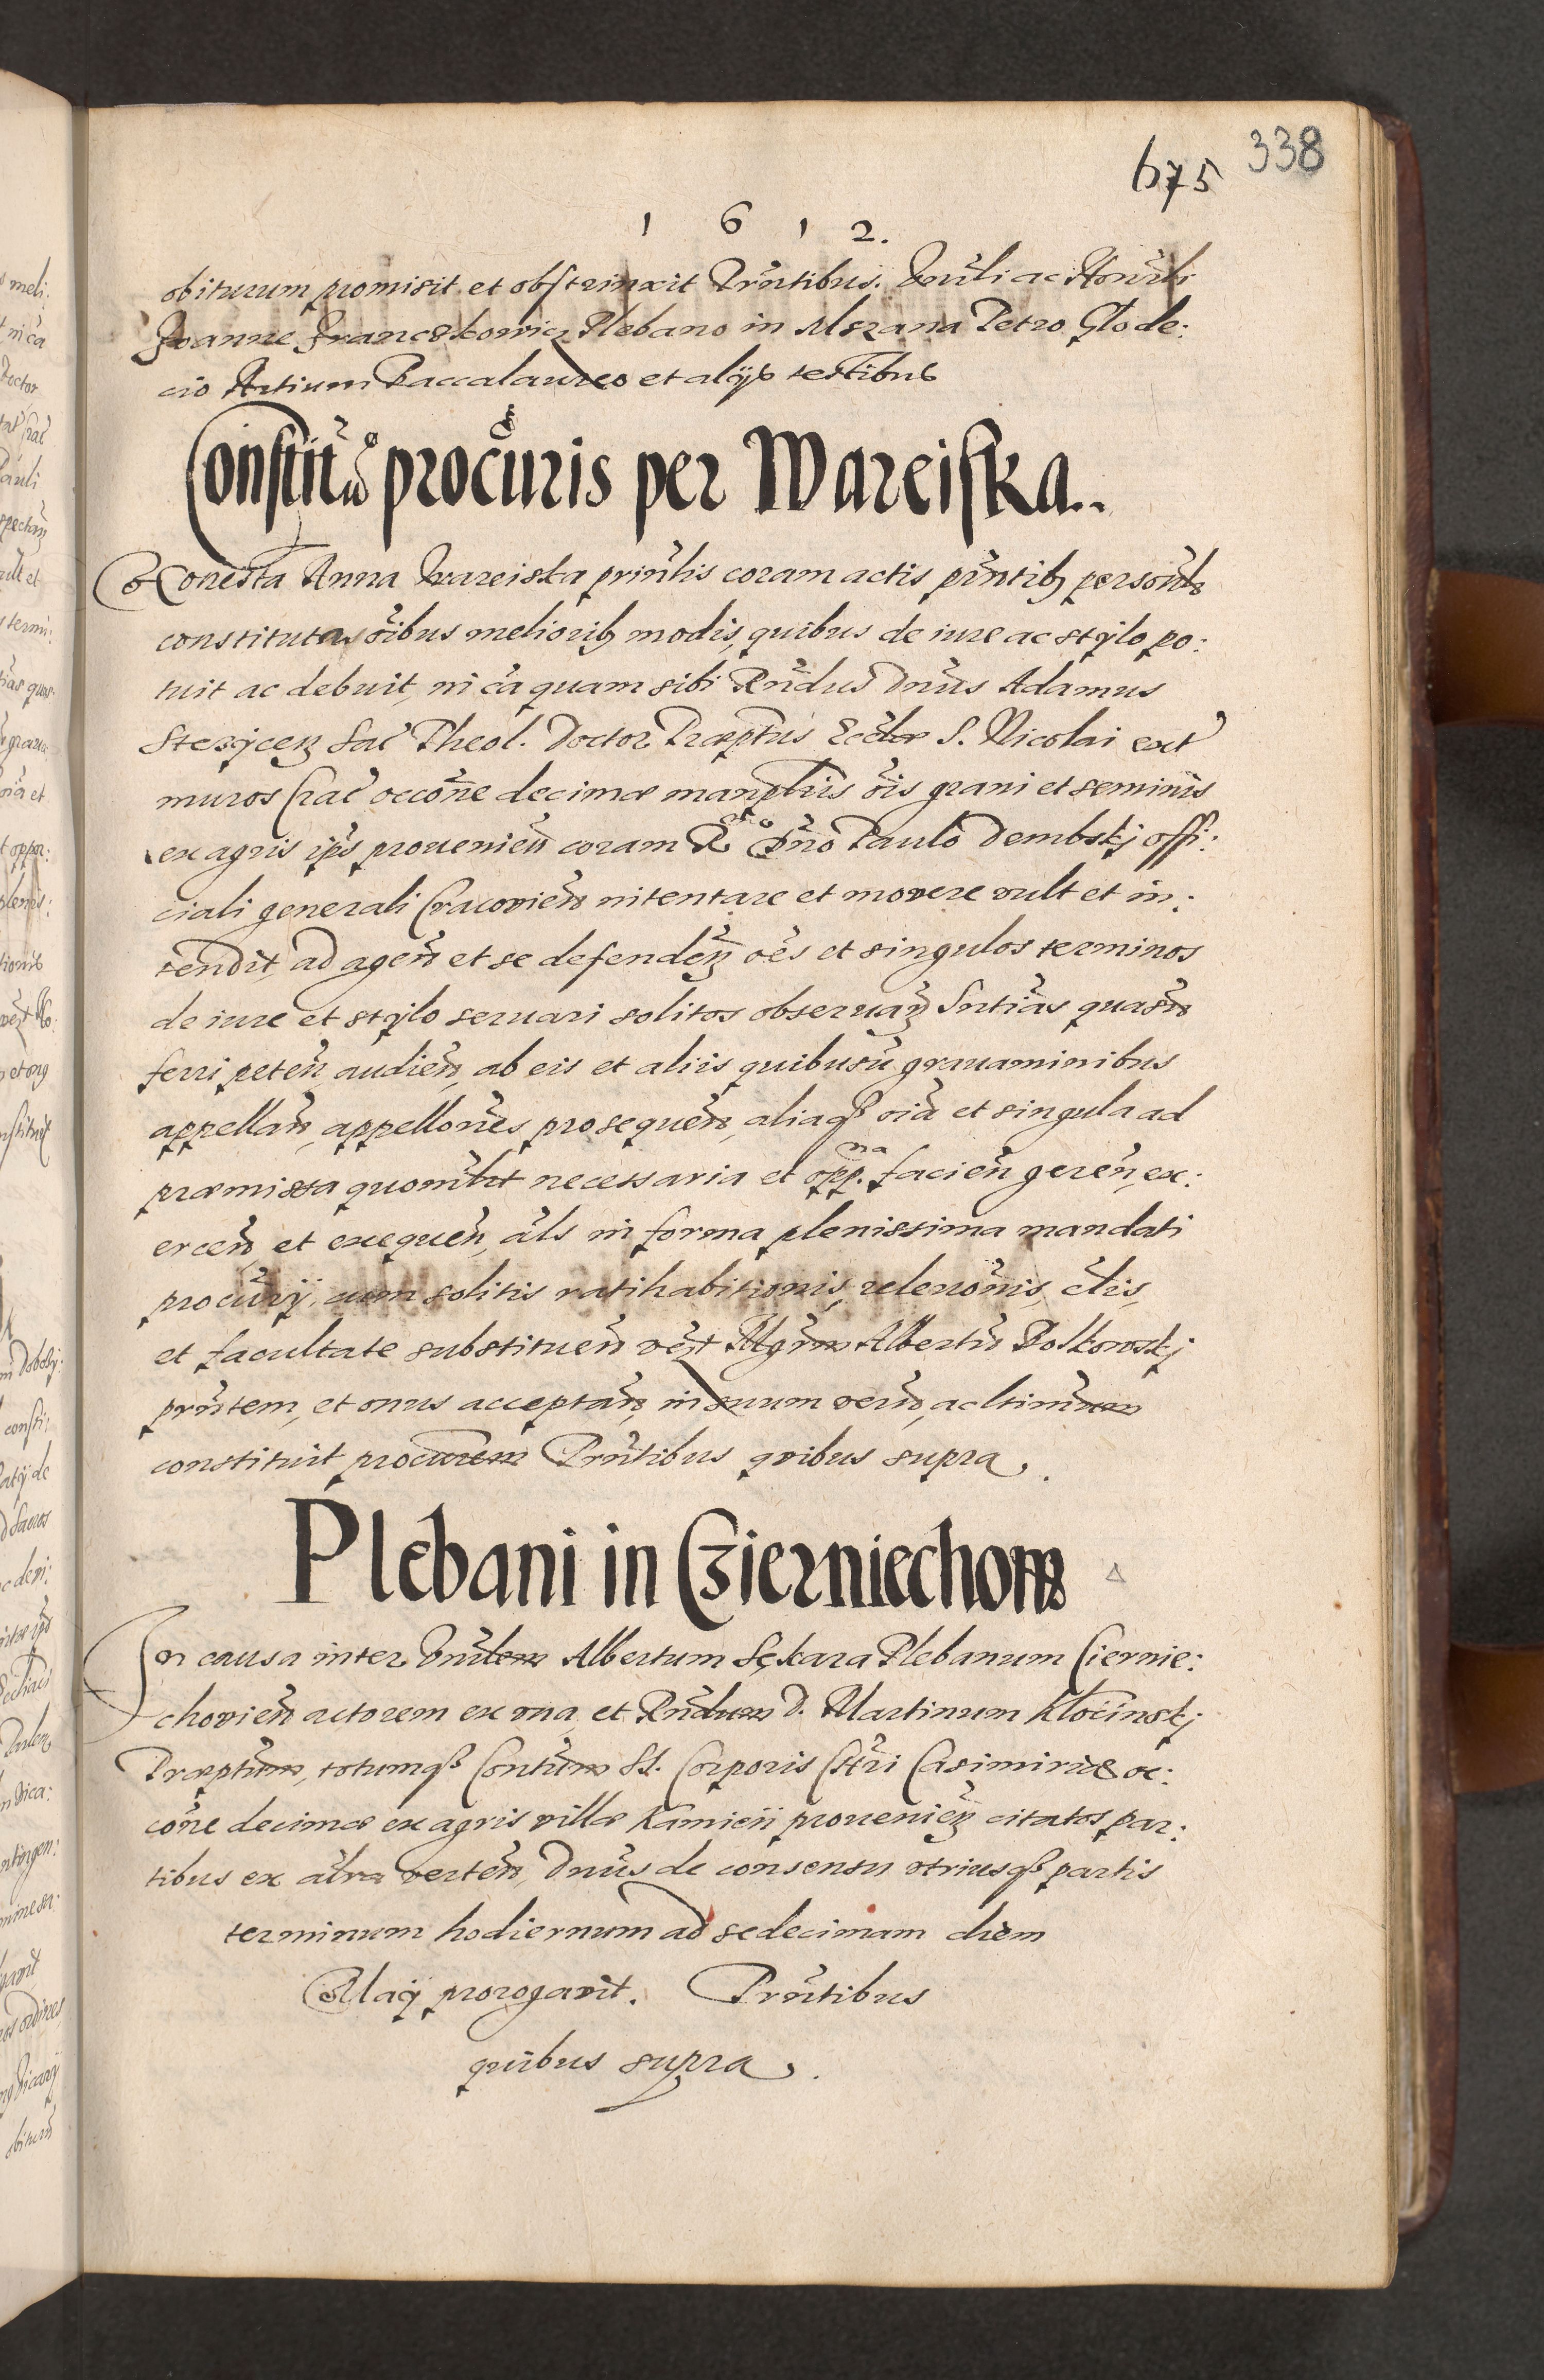 675 338
1 6 1 2.
obiturum promisit et obstrinxit Prñtibus. Vnĩli ac Honĩli
Joanne Francẓkowicz Plebano in Mszana Petro Glode:
cio Artium Baccalaureo et alijs testibus
Constit̃o procũris per Wareiska..
Honesta Anna Wareiska prinĩlis coram actis pñtibz personĩlr
constituta, oĩbus melioribz modis, quibus de iure ac stylo po:
tuit ac debuit, in cã quam sibi Rñdus Dñus Adamus
Steżycen Sac̃ Theol. Doctor Præptũs Eccłæ S. Nicolai ext̃
muros Crac̃ occõne decimæ manpłris oĩs grani et seminis
ex agris ip̃s prouenieñ coram R Dño Paulo Dembskj offi:
ciali generali Cracovieñ intentare et movere vult et in:
tendit, ad ageñ et se defendeñ oẽs et singulos terminos
de iure et stylo seruari solitos obseruañ Sntĩas quascũ
ferri peteñ, audieñ, ab eis et aliis quibuscũ grauaminibus
appellañ, appellõnes prosequeñ, aliaqз oĩa et singula ad
præmissa quomłt necessaria et opp.na facieñ gereñ, ex:
erceñ et exequeñ, als in forma plenissima mandati
procũrij, cum solitis ratihabitionis, releuõnis, cłis,
et facultate substitueñ vẽst Mgrum Albertũ Bolkowskj
prñtem, et onus acceptañ, in suum verũ, ac ltimum
constituit procurem Prñtibus quibus supra.
Plebani in Czierniechow
In causa inter Vnĩlem Albertum Sękara Plebanum Ciernie:
chovieñ actorem ex vna, et Rñdum D. Martinum Kłocinskj
Præptum, totumqз Contum SS. Corporis Chri Casimiriæ oc:
cõne decimæ ex agris villæ Kamieñ prouenieñ citatos par:
tibus ex altra verteñ, Dñus de consensu vtriusqз partis
terminum hodiernum ad sedecimam diem
Maij prorogavit. Prñtibus
quibus supra.